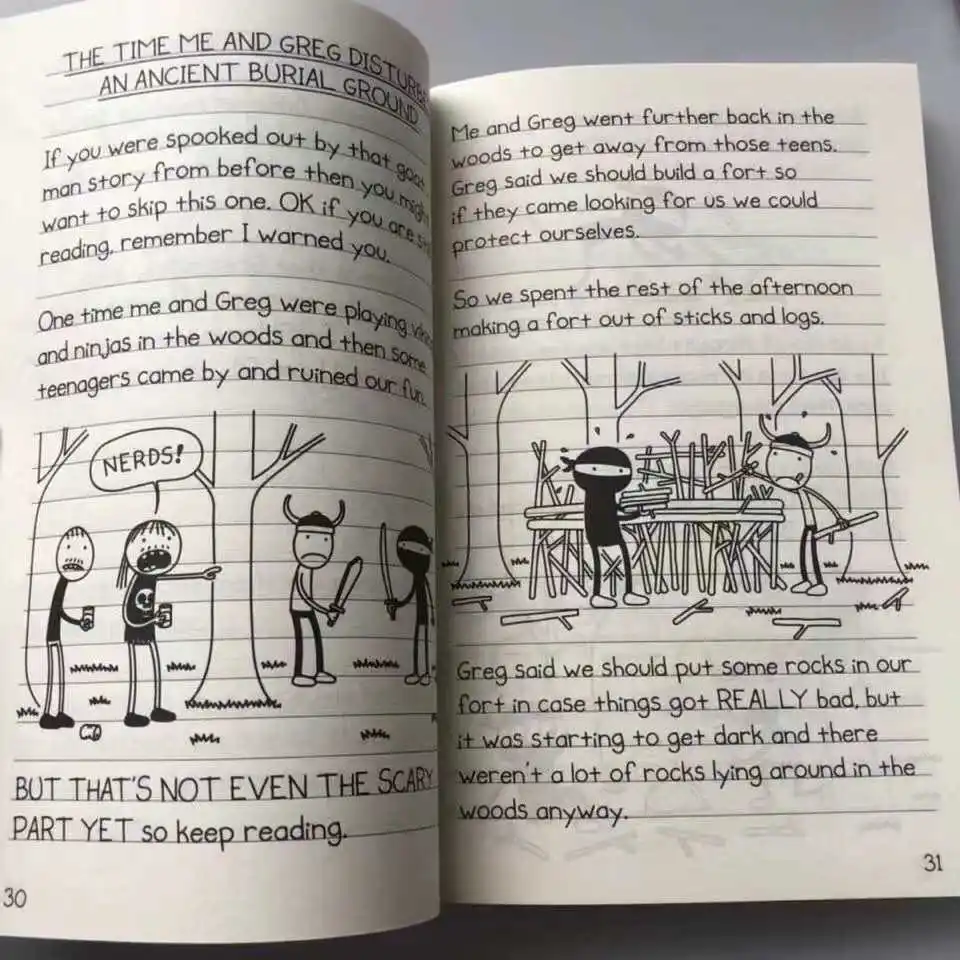 THE TIME ME AND GREG DISTURBE
AN ANCIENT BURIAL GROUND
If you were spooked out by that goat
man story from before then you might
want to skip this one. OK if you are
reading, remember I warned you.
One time me and Greg were playing
and ninjas in the woods and then some
teenagers came by and ruined our fun.
NERDS!
BUT THAT'S NOT EVEN THE SCARY
PART YET so keep reading.
30
Me and Greg went further back in the
woods to get away from those teens.
Greg said we should build a fort so
if they came looking for us we could
protect ourselves.
So we spent the rest of the afternoon
making a fort out of sticks and logs.
Greg said we should put some rocks in our
fort in case things got REALLY bad, but
it was starting to get dark and there
weren't a lot of rocks lying around in the
woods anyway.
31